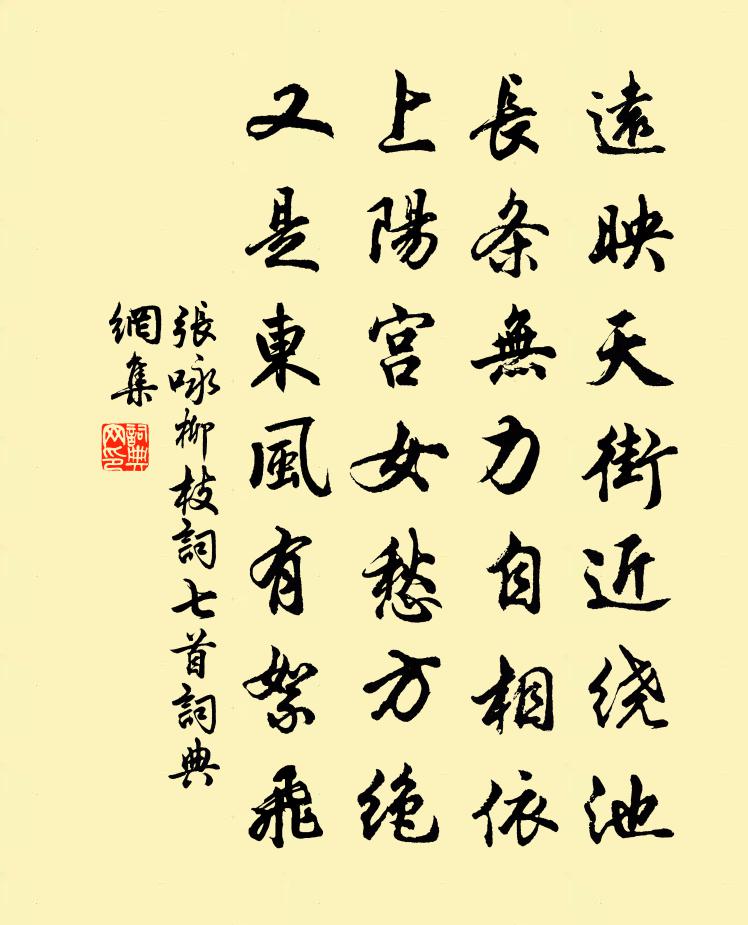 遠映天街近绕池
長条無力自相依
上陽宫女愁方绝
又是東風有絮飛
張咏柳枝詞七首詞典
網集
詞典
网印